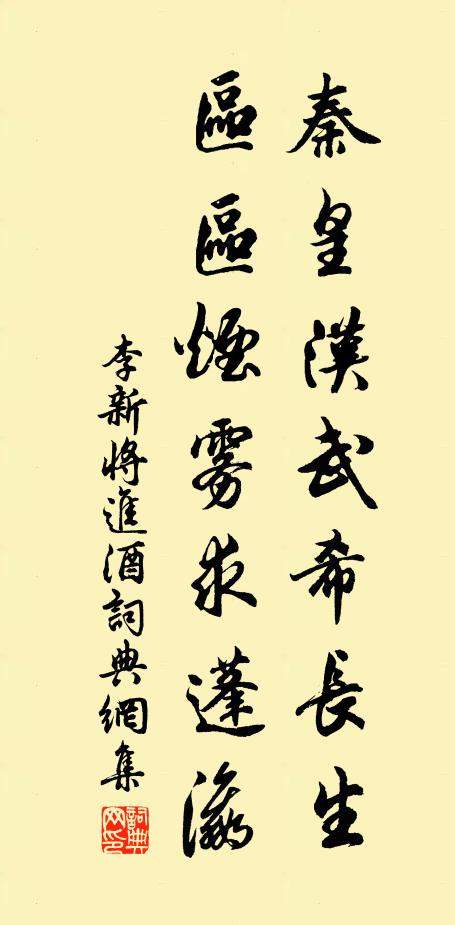 秦皇漢武希長生
區區煙霧求蓬瀛
李新將進酒詞典網集
詞典網印